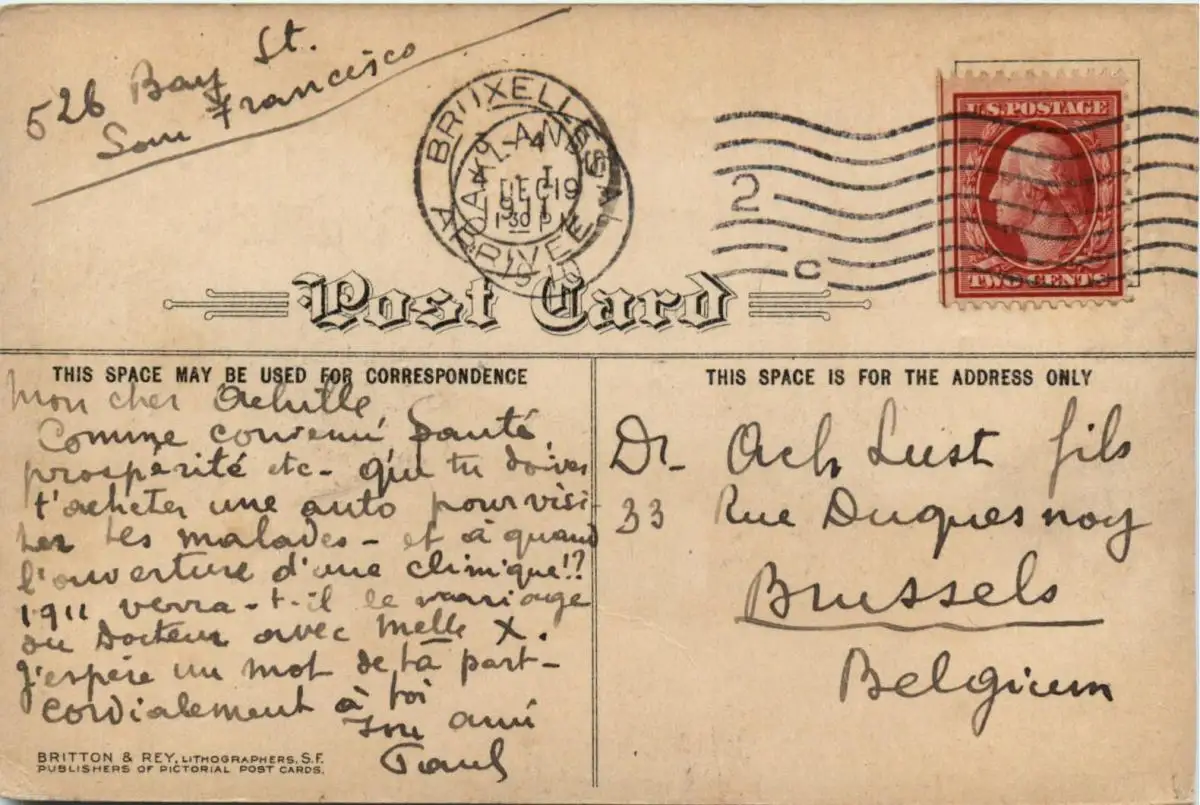 526 Bay St.
San Francisco
BRUXELLES
ARRIVEE
DEC 19
1 30 P
2
C
U.S. POSTAGE
TWO CENTS
Post Card
THIS SPACE MAY BE USED FOR CORRESPONDENCE
Mon cher Achille,
Comme convenu Santé,
prospérité etc - que tu doives
t'acheter une auto pour visi-
ter tes malades - et à quand
l'ouverture d'une clinique!?
1911 verra-t-il le mariage
du Docteur avec Melle X.
J'espère un mot de ta part -
Cordialement à toi
Ton ami
Paul
BRITTON & REY, LITHOGRAPHERS, S.F.
PUBLISHERS OF PICTORIAL POST CARDS.
THIS SPACE IS FOR THE ADDRESS ONLY
Dr- Ach Lust fils
33 Rue Duquesnoy
Brussels
Belgium